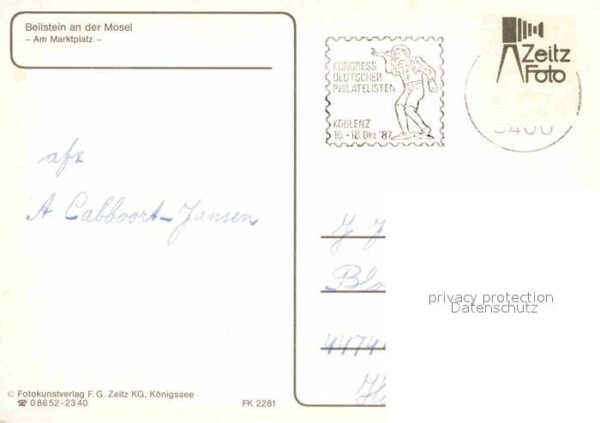 Beilstein an der Mosel
- Am Marktplatz -
KONGRESS
DEUTSCHER
PHILATELISTEN
KOBLENZ
16.-18. Okt. '87
Zeitz
Foto
5400
afz
A Cabboort-Jansen
J J
Bl
4474
H
privacy protection
Datenschutz
© Fotokunstverlag F. G. Zeitz KG, Königssee
☎ 0 86 52 - 23 40
FK 2281